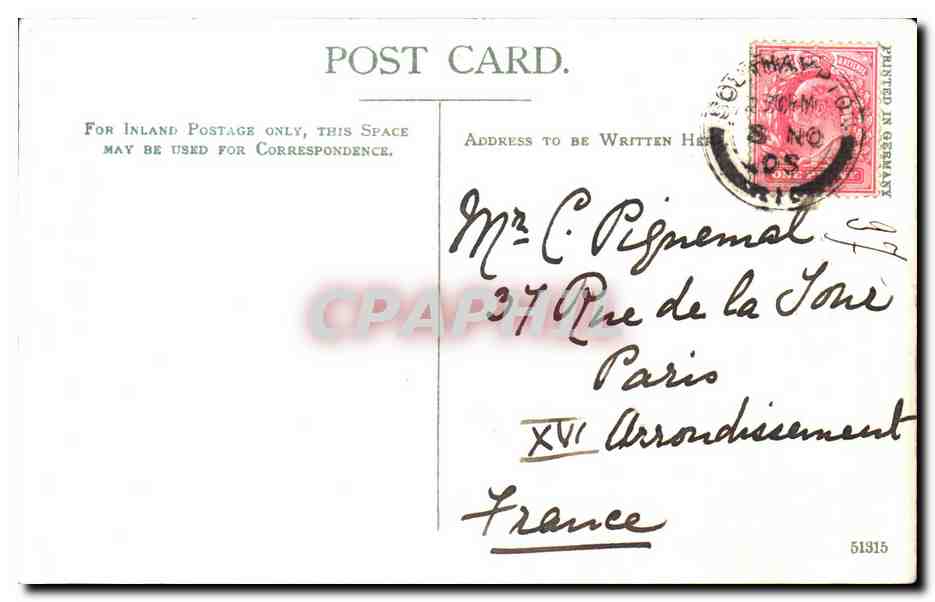 POST CARD.
FOR INLAND POSTAGE ONLY, THIS SPACE
MAY BE USED FOR CORRESPONDENCE.
ADDRESS TO BE WRITTEN HE
PRINTED IN GERMANY
SOUTHAMPTON
8 NO
05
ONE PENNY
Mr C. Pignemal
37 Rue de la Tour
Paris
XVI Arrondissement
France
51315
CPAPHIL